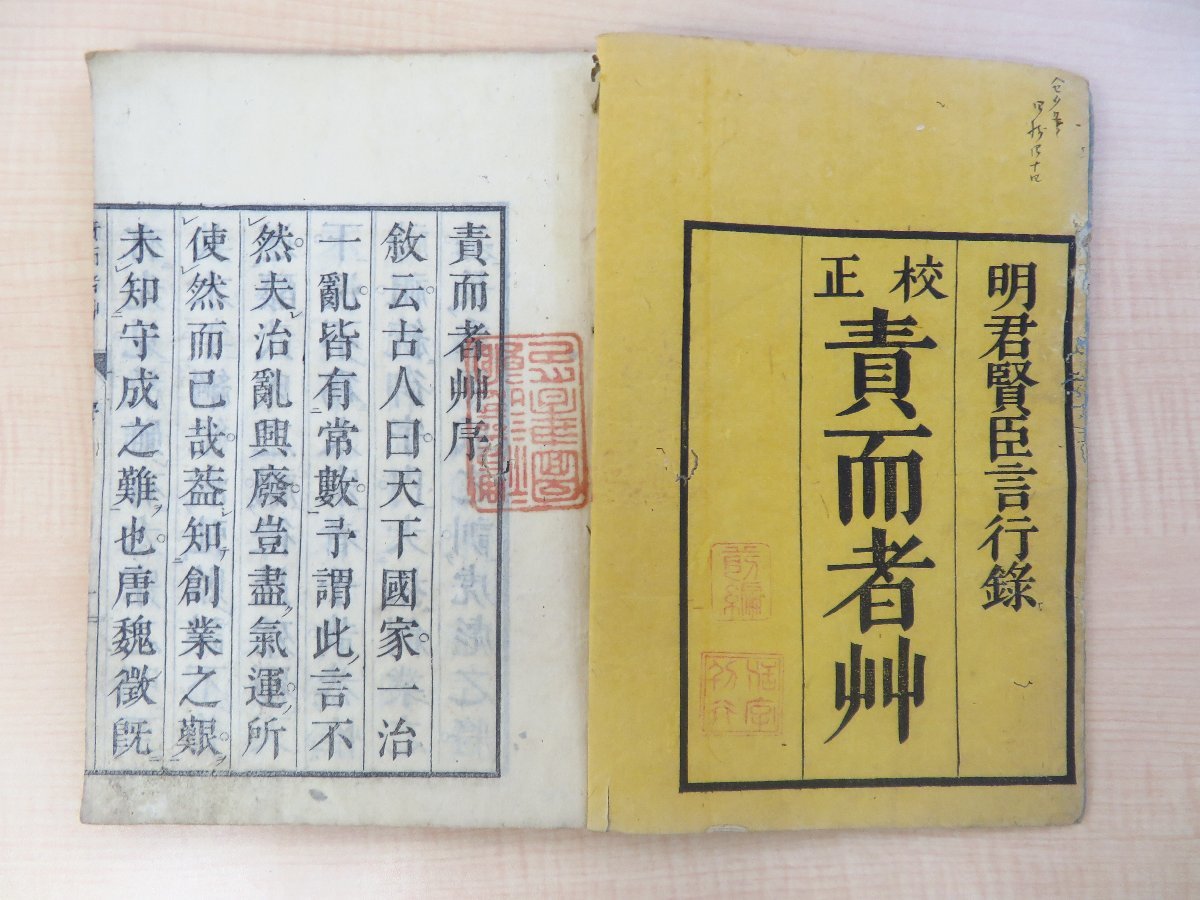 明君賢臣言行錄
校正
責而者艸
前編
活字刻行
責而者艸序
敘云古人曰天下國家一治
一亂皆有常數予謂此言不
然夫治亂興廢豈盡氣運所
使然而已哉葢知創業之艱
未知守成之難也唐魏徵旣